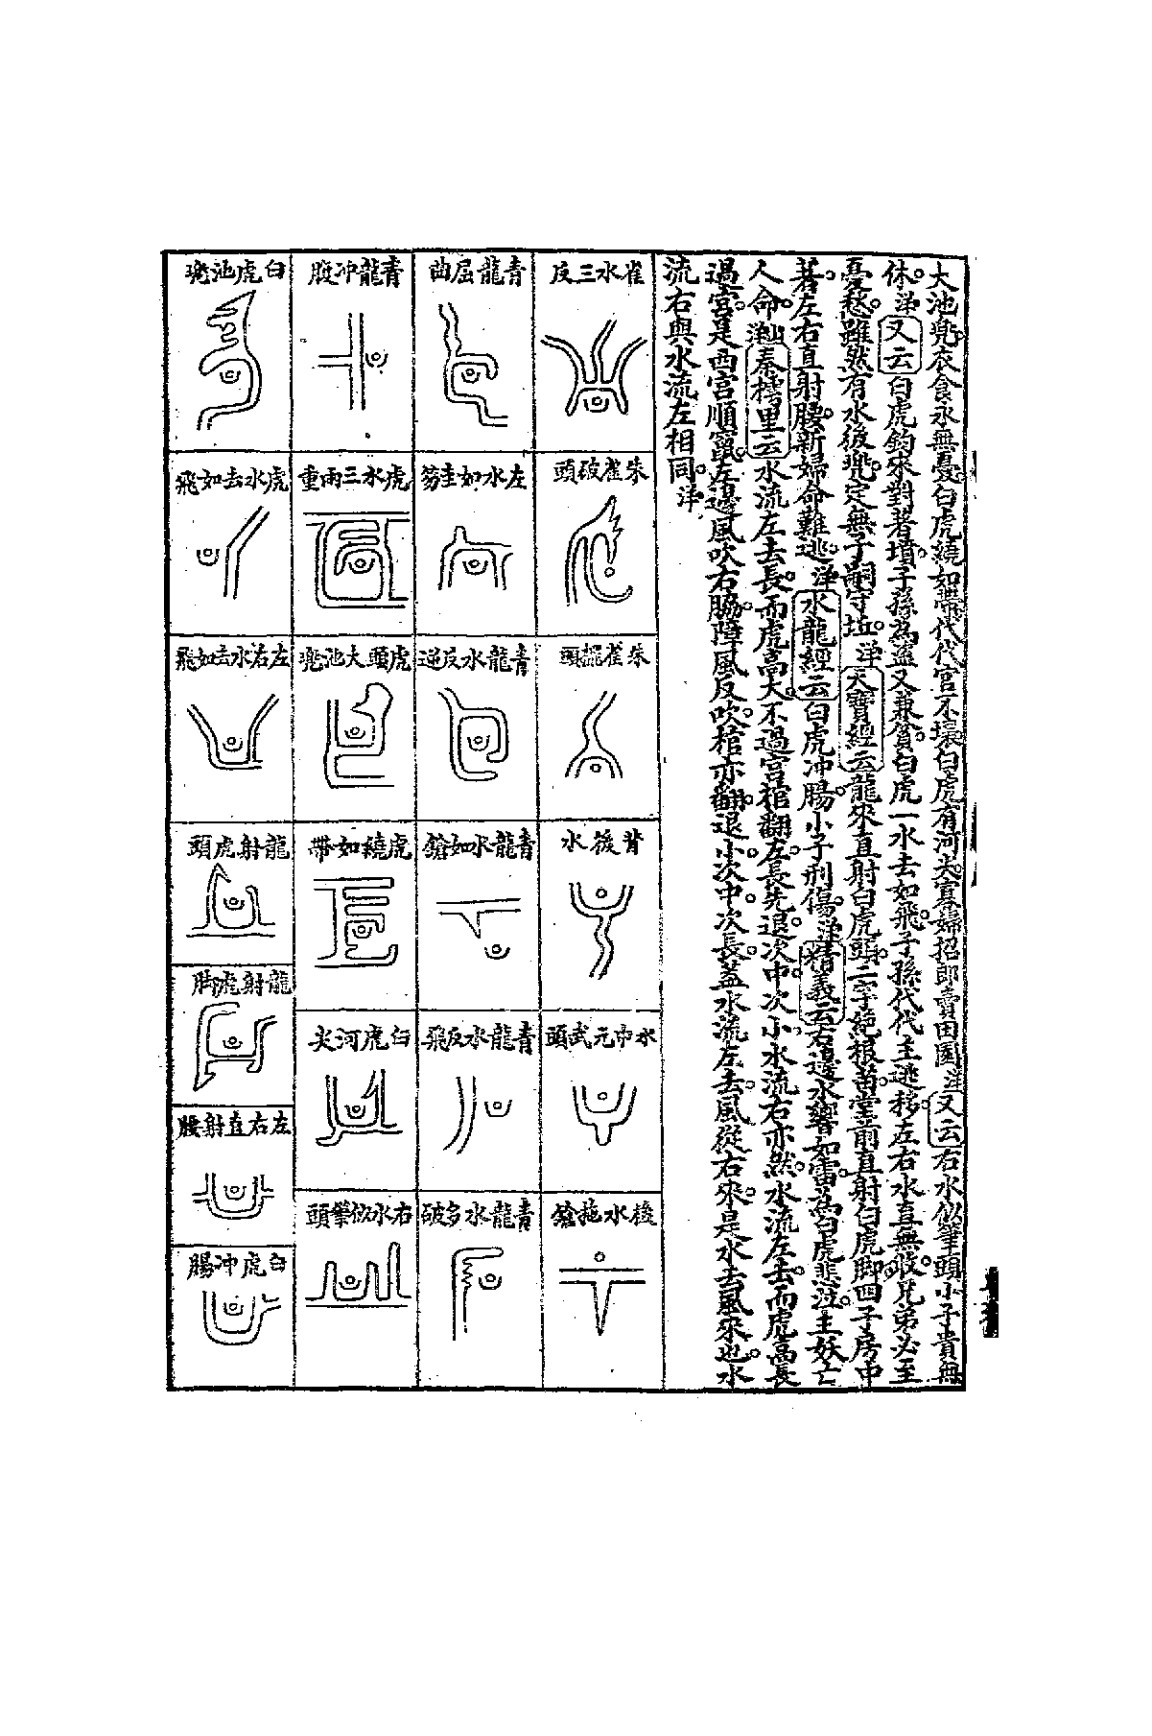 大池兠衣食永無憂白虎繞如帶代代官不壞白虎有河尖寡婦招郎賣田園洋又云右水似筆頭小子貴無
休洋又云白虎鈎來對著墳子孫為盜又兼貧白虎一水去如飛子孫代代主逃移左右水直無兄弟必至
憂愁雖然有水後兠定無子嗣守坵洋天寶經云龍來直射白虎頭二字絶根苗堂前直射白虎脚四子房中
著左右直射腰新婦命難逃洋水龍經云白虎冲腸小子刑傷洋精義云右邊水響如雷為白虎悲泣主妖亡
人命秦樗里云水流左去長而虎高大不過宮棺翻左長先退次中次小水流右亦然水流左去而虎高長
過宮是西宮順竄左邊風吹右脇障風反吹棺亦翻退小次中次長蓋水流左去風從右來是水去風來也水
流右與水流左相同洋
雀水三反
朱雀破頭
朱雀擺頭
背後水
水中元武頭
後水拖鎗
青龍屈曲
左水如圭笏
青龍水反逆
青龍水如鎗
青龍水反飛
青龍水多破
青龍冲腹
虎水三兩重
虎頭大池兠
虎繞如帶
白虎河尖
右水似筆頭
白虎池兠
虎水去如飛
左右水去如飛
龍射虎頭
龍射虎脚
左右直射腰
白虎冲腸